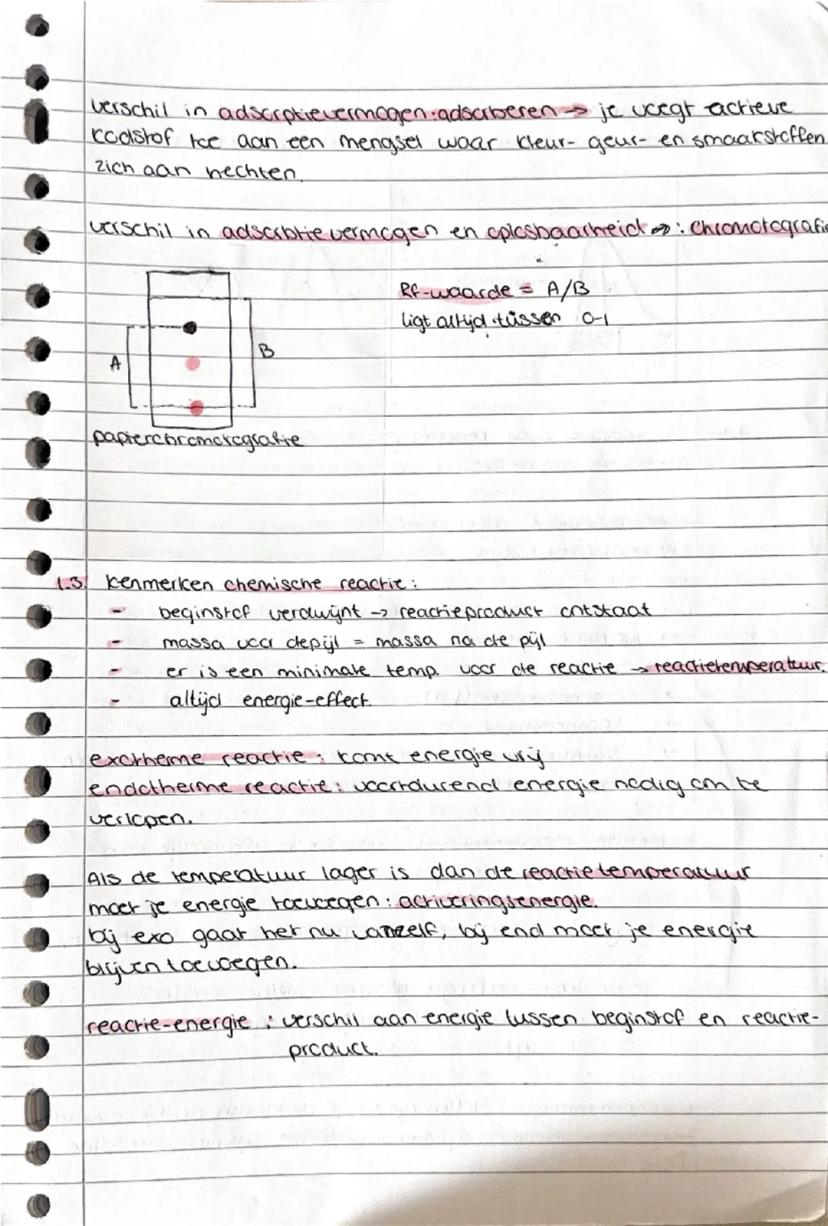 verschil in adsorptievermogen: adsorberen → je voegt actieve
koolstof toe aan een mengsel waar kleur- geur- en smaakstoffen
zich aan hechten.
verschil in adsorbtie vermogen en oplosbaarheid →: chromotografie
Rf-waarde = A/B
ligt altijd tussen 0-1
A
B
papierchromotografie
1.3. kenmerken chemische reactie:
- beginstof verdwijnt → reactieproduct ontstaat
- massa voor de pijl = massa na de pijl
- er is een minimale temp. voor de reactie → reactietemperatuur.
- altijd energie-effect.
exotherme reactie: komt energie vrij
endotherme reactie: voortdurend energie nodig om te
verlopen.
Als de temperatuur lager is dan de reactietemperatuur
moet je energie toevoegen: activeringsenergie.
bij exo gaat het nu vanzelf, bij end moet je energie
blijven toevoegen.
reactie-energie: verschil aan energie tussen beginstof en reactie-
product.